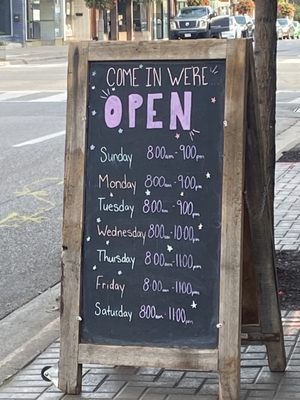 COME IN WE'RE...
OPEN
Sunday 8:00am-9:00pm
Monday 8:00am-9:00pm
Tuesday 8:00am-9:00pm
Wednesday 8:00am-10:00pm
Thursday 8:00am-11:00pm
Friday 8:00am-11:00pm
Saturday 8:00am-11:00pm